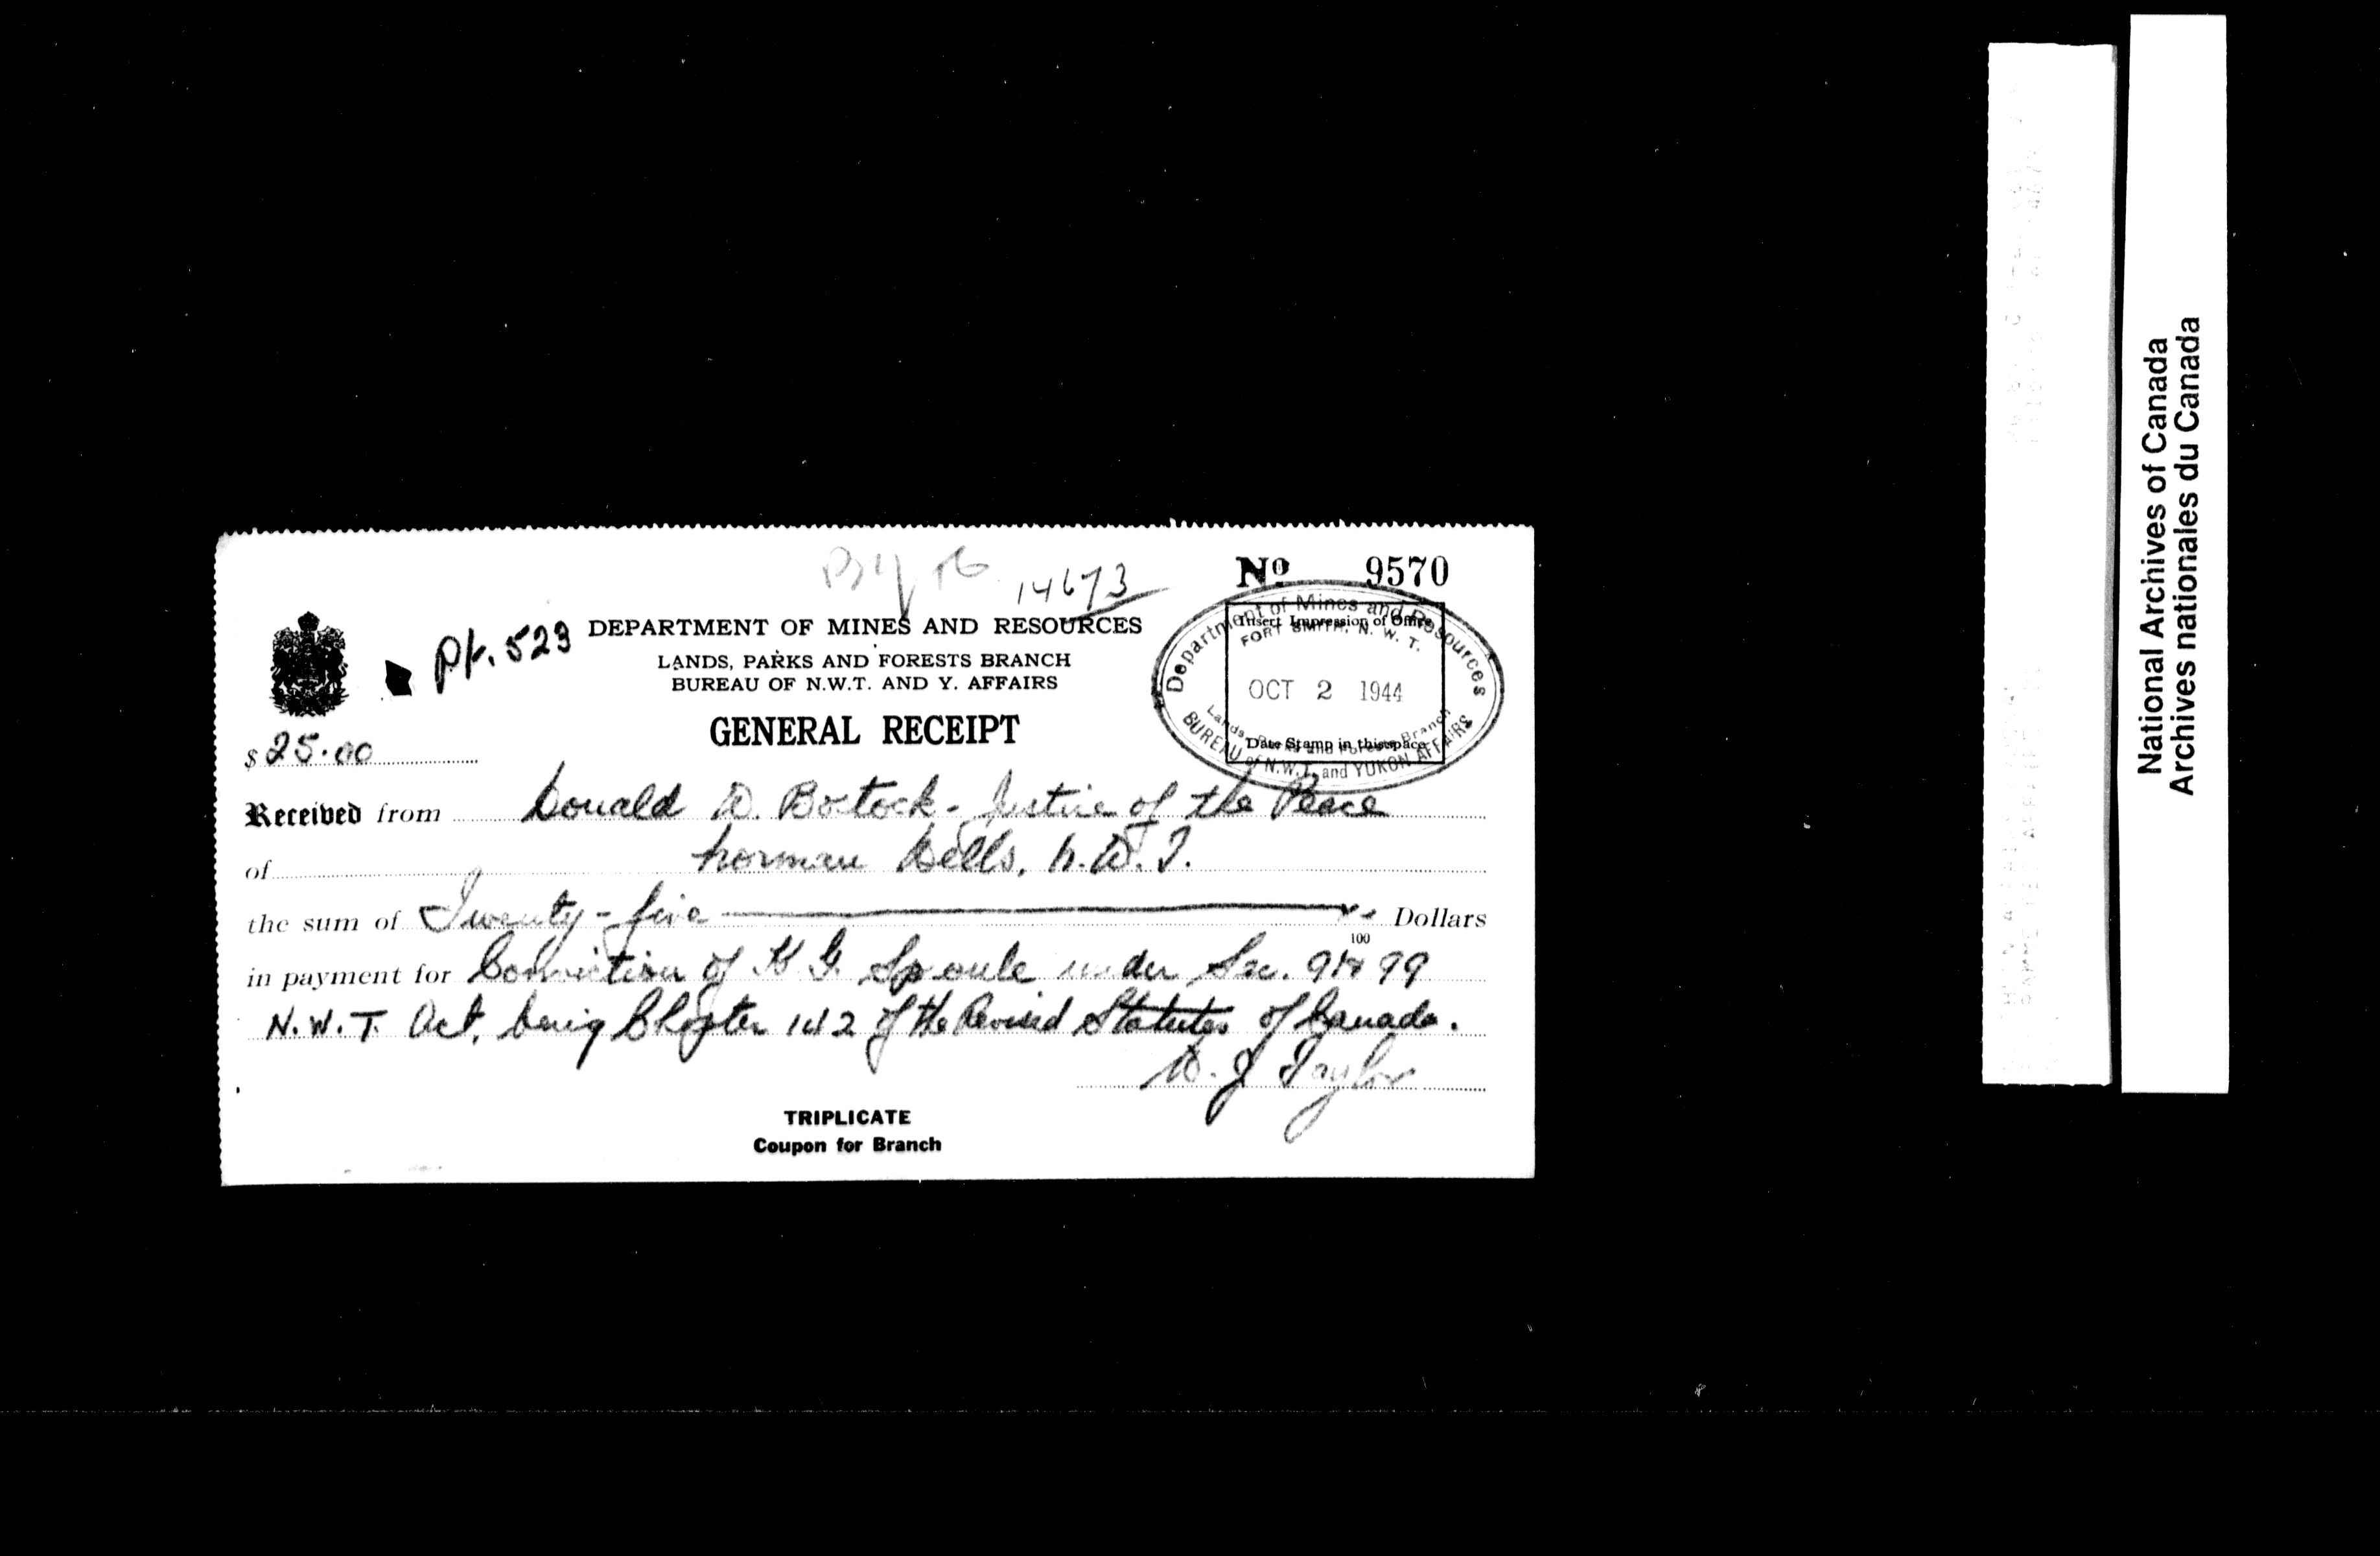 14673
No 9570
pt. 523
DEPARTMENT OF MINES AND RESOURCES
LANDS, PARKS AND FORESTS BRANCH
BUREAU OF N.W.T. AND Y. AFFAIRS
GENERAL RECEIPT
Department of Mines and Resources
Insert Impression of Office
FORT SMITH, N. W. T.
OCT 2 1944
Lands, Parks and Forests Branch
Date Stamp in this space
BUREAU of N.W.T. and YUKON AFFAIRS
$ 25.00
Received from Donald W. Bostock - Justice of the Peace
of Norman Wells, N.W.T.
the sum of Twenty-five Dollars
100
in payment for Conviction of G. Sproule under Sec. 99
N.W.T. Act, being Chapter 142 of the Revised Statutes of Canada.
W. J Taylor
TRIPLICATE
Coupon for Branch
National Archives of Canada
Archives nationales du Canada